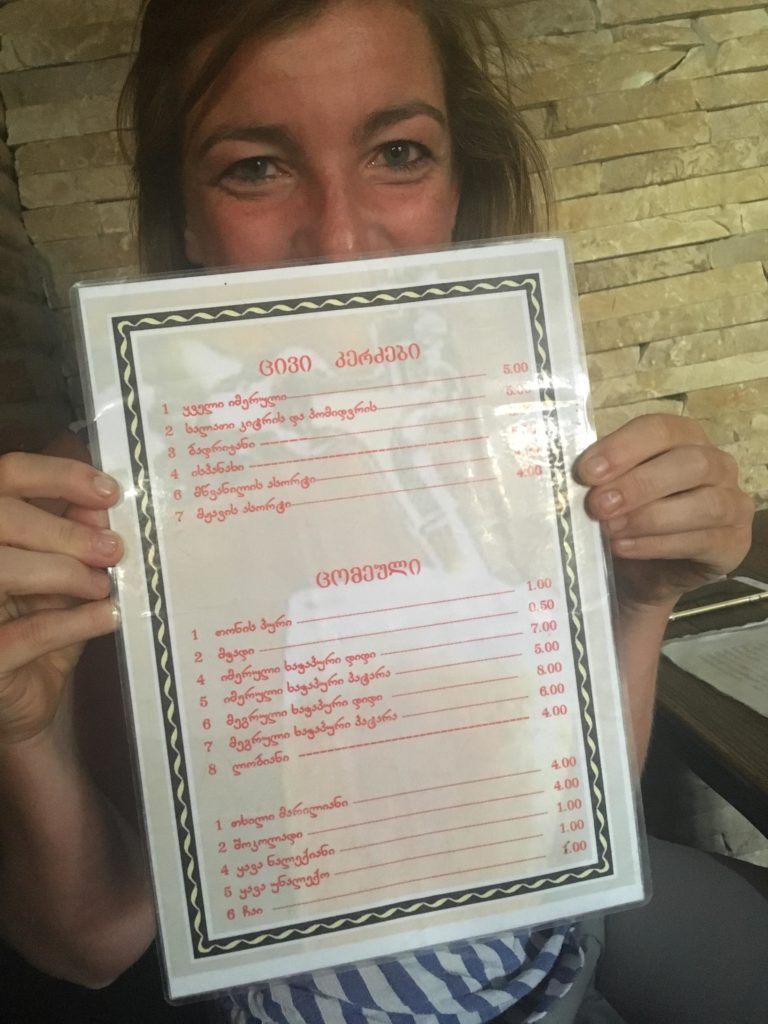 ცივი კერძები
1 ყველი იმერული 5.00
2 სალათი კიტრის და პომიდვრის 5.00
3 ბადრიჯანი
4 ისპანახი
6 მწვანილის ასორტი
7 მჟავის ასორტი 4.00
ცომეული
1 თონის პური 1.00
2 მჭადი 0.50
4 იმერული ხაჭაპური დიდი 7.00
5 იმერული ხაჭაპური პატარა 5.00
6 მეგრული ხაჭაპური დიდი 8.00
7 მეგრული ხაჭაპური პატარა 6.00
8 ლობიანი 4.00
1 თხილი მარილიანი 4.00
2 შოკოლადი 4.00
4 ყავა ნალექიანი 1.00
5 ყავა უნალექო 1.00
6 ჩაი 1.00